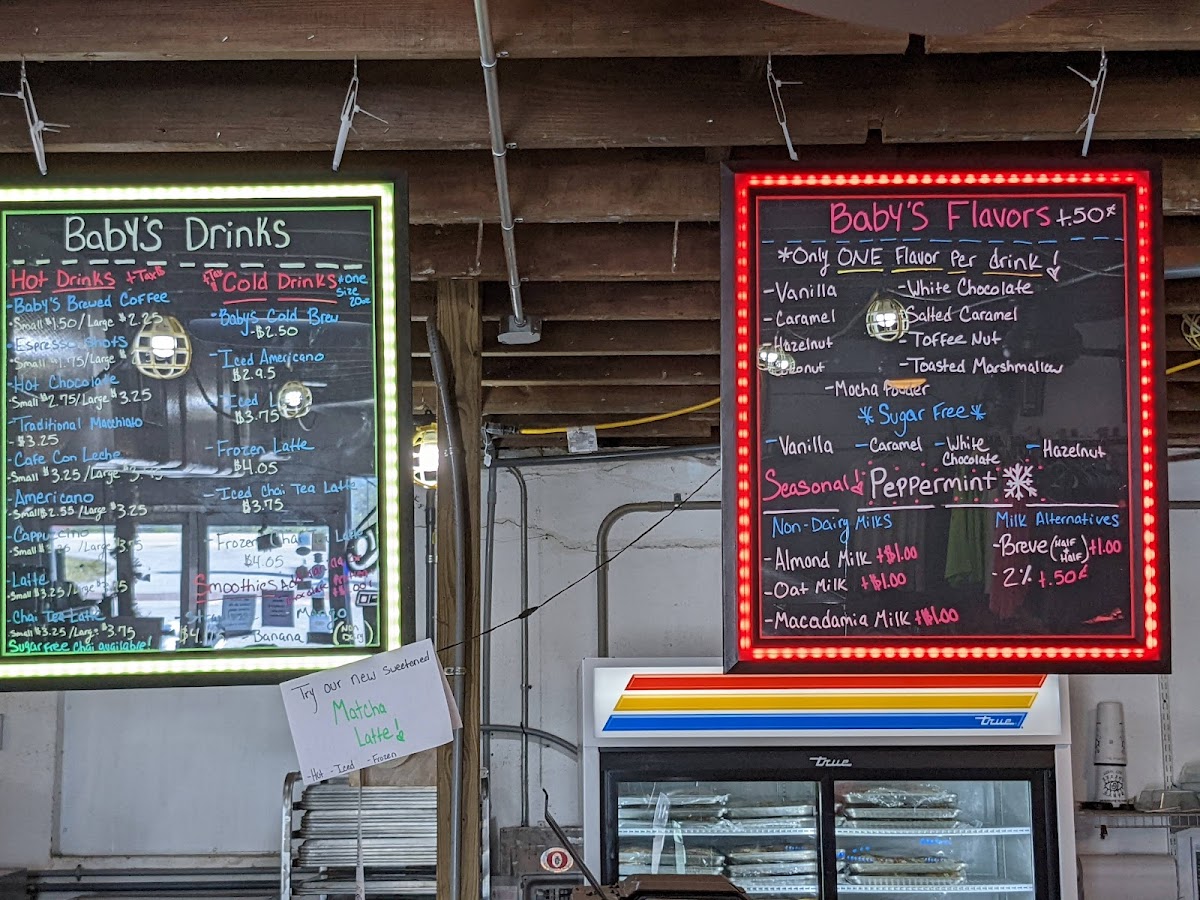 BaBY'S DrinKs
Hot Drinks +Tax
-Baby's Brewed Coffee
•Small $1.50/Large $2.25
-Espresso Shots
-Hot Chocolate
Small $2.75/Large $3.25
-Traditional Macchiato
-$3.25
-Cafe Con Leche
Small $3.25/Large
-Americano
Small $2.55/Large $3.25
-Cappuccino
-Latte
Small $3.25/
-Chai Tea Latte
Small $3.25/Large $3.75
Sugar free Chai available!
+Tax Cold Drinks *one Size 20oz
-Baby's Cold Brew
-$2.50
-Iced Americano
$2.95
-Iced
$3.75
-Frozen Latte
$4.05
-Iced Chai Tea Latte
$3.75
-Frozen Chai Latte
$4.05
Smoothies
Mango
-Banana
BaBY'S Flavors +.50¢
*Only ONE Flavor Per drink!
-Vanilla
-Caramel
-Hazelnut
-White Chocolate
Salted Caramel
-Toffee Nut
-Toasted Marshmallow
-Mocha Powder
*Sugar Free*
-Vanilla -Caramel -White Chocolate -Hazelnut
Seasonal! Peppermint
Non-Dairy Milks
-Almond Milk +$1.00
-Oat Milk +$1.00
-Macadamia Milk +$1.00
Milk Alternatives
-Breve (HALF + HALF) +1.00
-2% +.50¢
Try our new sweetened
Matcha
Latte!
-Hot -Iced -Frozen
true
true